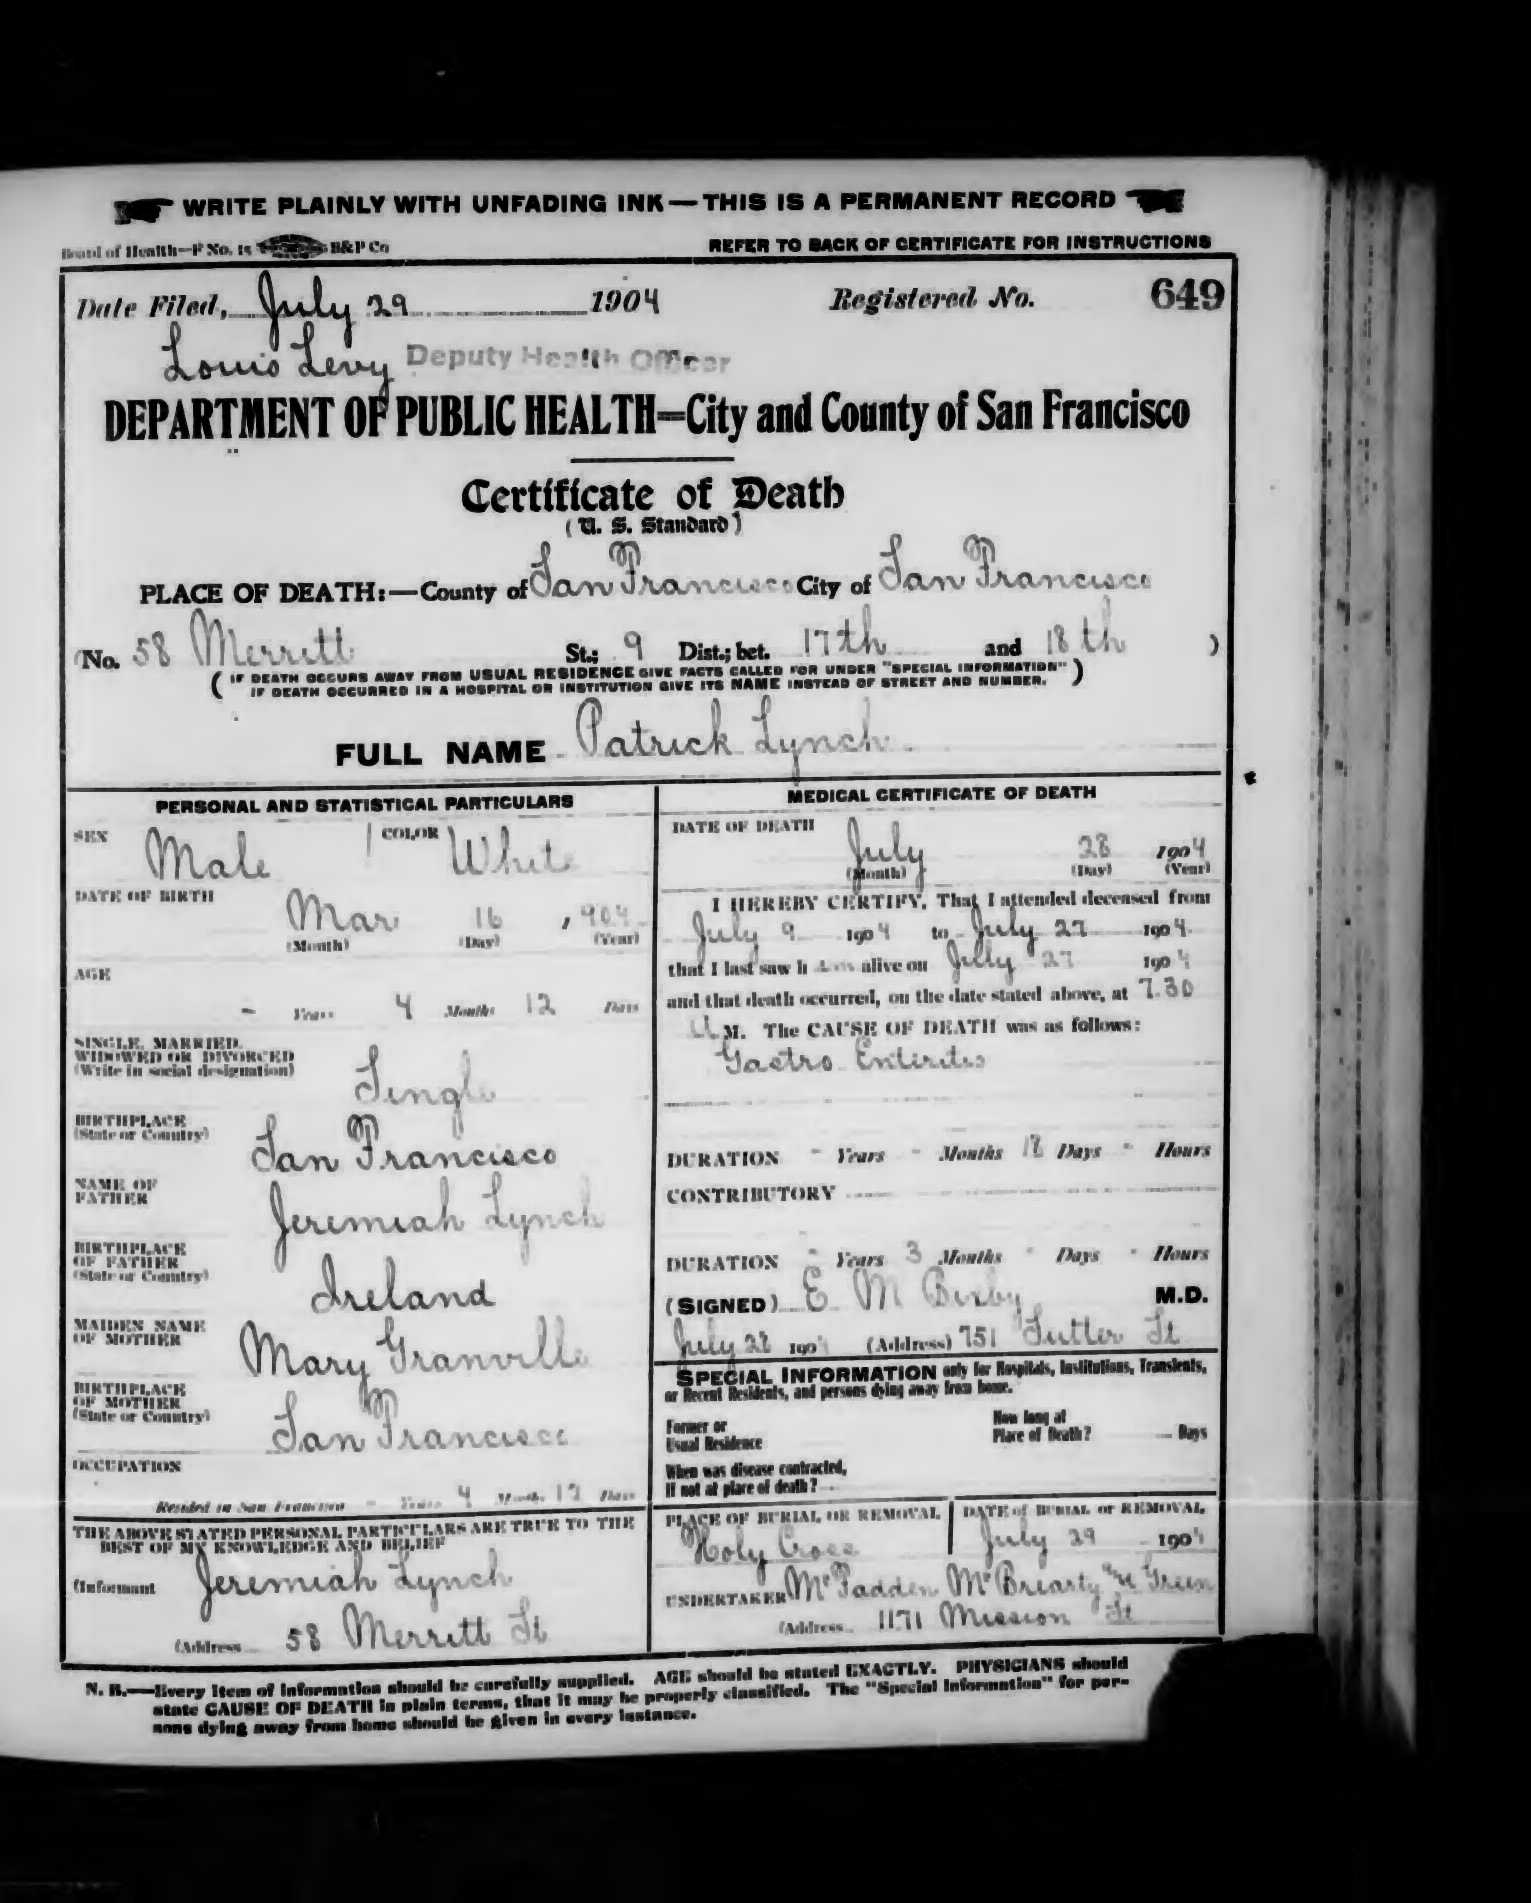 WRITE PLAINLY WITH UNFADING INK—THIS IS A PERMANENT RECORD
Board of Health—F No. 15 B&P Co REFER TO BACK OF CERTIFICATE FOR INSTRUCTIONS
Date Filed, July 29 1904 Registered No. 649
Louis Levy Deputy Health Officer
DEPARTMENT OF PUBLIC HEALTH=City and County of San Francisco
Certificate of Death
(U. S. Standard)
PLACE OF DEATH:—County of San Francisco City of San Francisco
(No. 58 Merritt St.; 9 Dist.; bet. 17th and 18th )
( IF DEATH OCCURS AWAY FROM USUAL RESIDENCE GIVE FACTS CALLED FOR UNDER "SPECIAL INFORMATION" )
IF DEATH OCCURRED IN A HOSPITAL OR INSTITUTION GIVE ITS NAME INSTEAD OF STREET AND NUMBER.
FULL NAME Patrick Lynch
PERSONAL AND STATISTICAL PARTICULARS
SEX Male COLOR White
DATE OF BIRTH
Mar 16 , 904
(Month) (Day) (Year)
AGE
- Years 4 Months 12 Days
SINGLE, MARRIED,
WIDOWED OR DIVORCED
(Write in social designation)
Single
BIRTHPLACE
(State or Country)
San Francisco
NAME OF
FATHER
Jeremiah Lynch
BIRTHPLACE
OF FATHER
(State or Country)
Ireland
MAIDEN NAME
OF MOTHER
Mary Granville
BIRTHPLACE
OF MOTHER
(State or Country)
San Francisco
OCCUPATION
Resided in San Francisco - Years 4 Months 12 Days
THE ABOVE STATED PERSONAL PARTICULARS ARE TRUE TO THE
BEST OF MY KNOWLEDGE AND BELIEF
(Informant Jeremiah Lynch
(Address 58 Merritt St
MEDICAL CERTIFICATE OF DEATH
DATE OF DEATH
July 28 1904
(Month) (Day) (Year)
I HEREBY CERTIFY, That I attended deceased from
July 9 1904 to July 27 1904
that I last saw h im alive on July 27 1904
and that death occurred, on the date stated above, at 7.30
a M. The CAUSE OF DEATH was as follows:
Gastro Enteritis
DURATION - Years - Months 18 Days - Hours
CONTRIBUTORY
DURATION - Years 3 Months - Days - Hours
(SIGNED) E M Bixby M.D.
July 28 1904 (Address) 751 Sutter St
SPECIAL INFORMATION only for Hospitals, Institutions, Transients,
or Recent Residents, and persons dying away from home.
Former or
Usual Residence
How long at
Place of Death? Days
When was disease contracted,
If not at place of death?
PLACE OF BURIAL OR REMOVAL
Holy Cross
DATE of BURIAL or REMOVAL
July 29 1904
UNDERTAKER McFadden McBrearty and Green
(Address 1171 Mission St
N. B.—Every item of information should be carefully supplied. AGE should be stated EXACTLY. PHYSICIANS should
state CAUSE OF DEATH in plain terms, that it may be properly classified. The "Special Information" for per-
sons dying away from home should be given in every instance.